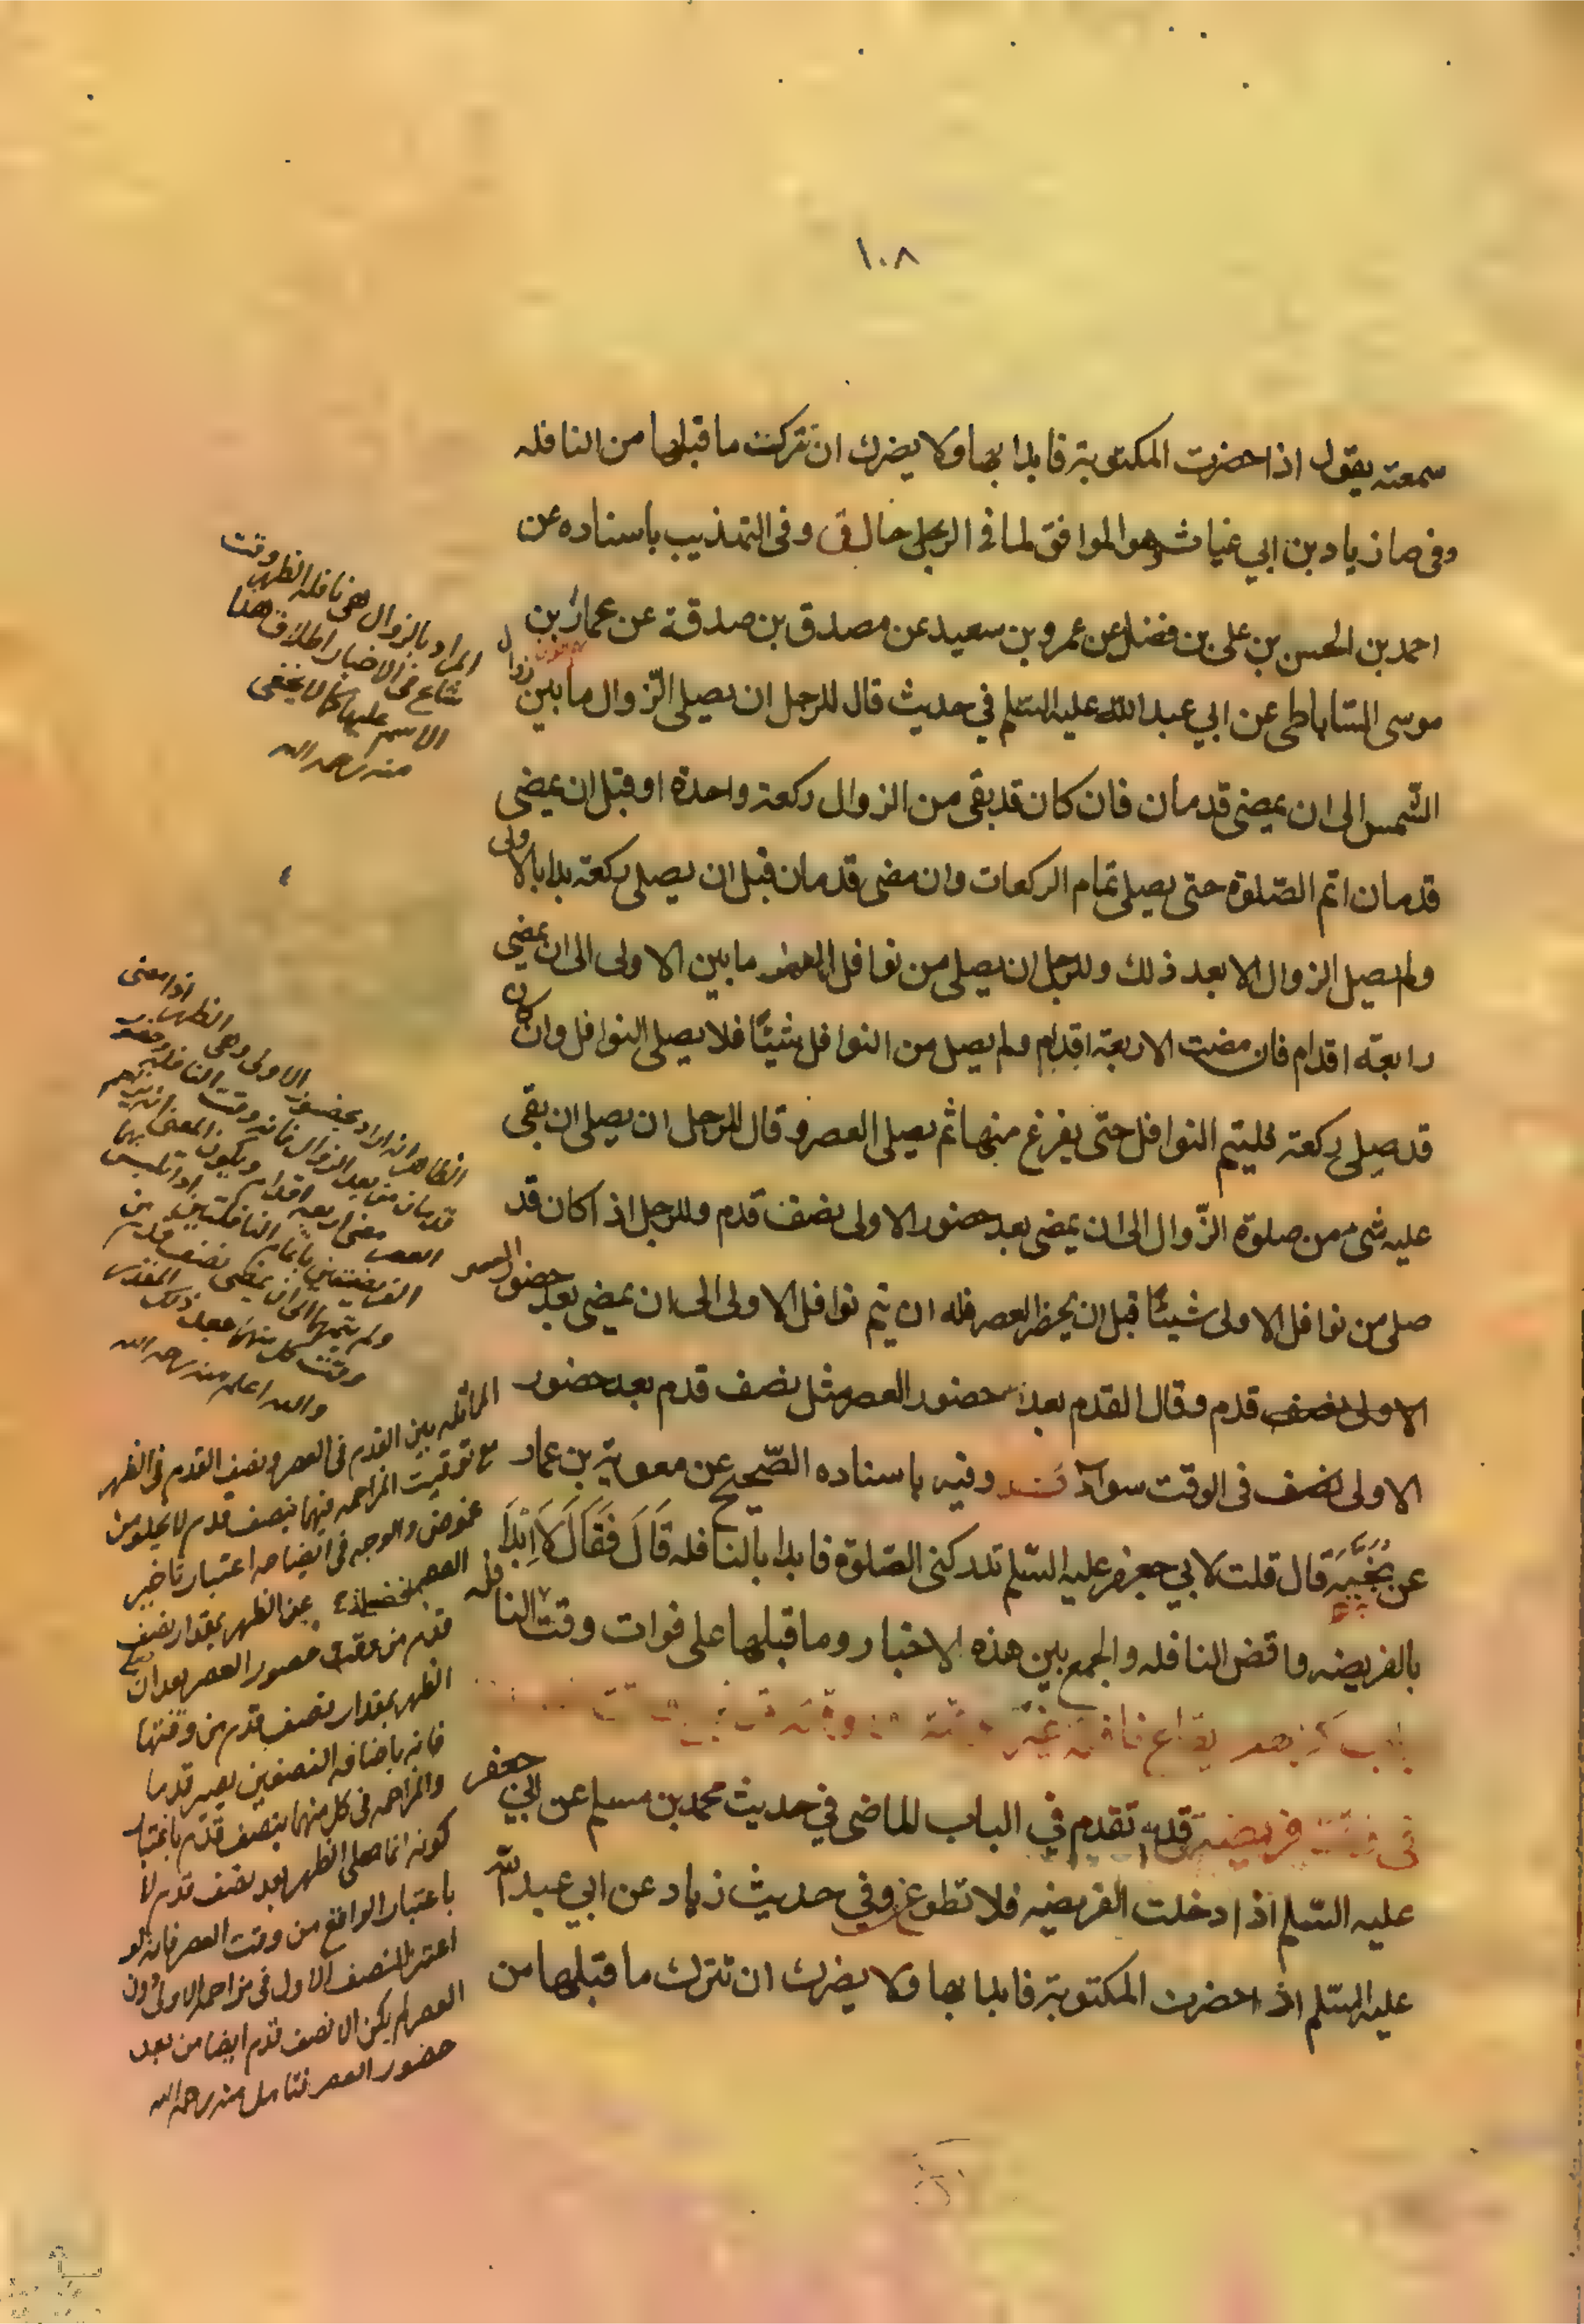 ١٠٨
سمعته يقول اذا حضرت المكتوبة فابدا بها ولا يضرك ان تتركت ما قبلها من النافله
وفى صا زياد بن ابي غياث وهو الموافق لما فى الرجال وفى التهذيب باسناده عن
احمد بن الحسن بن على بن فضل عن عمرو بن سعيد عن مصدق بن صدقة عن عمار بن
موسى الساباطى عن ابي عبد الله عليه السلم في حديث قال للرجل ان يصلى الزوال ما بين زوال
الشمس الى ان يمضى قدمان فان كان قد بقى من الزوال ركعة واحدة او قبل ان يمضى
قدمان اتم الصلوة حتى يصلى تمام الركعات وان مضى قدمان قبل ان يصلى ركعة بدا بالاولى
ولم يصل الزوال الا بعد ذلك وللرجل ان يصلى من نوافل ما بين الاولى الى ان يمضى
رابعة اقدام فان مضت الاربعة اقدام ولم يصل من النوافل شيئا فلا يصلى النوافل وان كان
قد صلى ركعة فليتم النوافل حتى يفرغ منها ثم يصلى العصر وقال للرجل ان يصلى ان بقى
عليه شىء من صلوة الزوال الى ان يمضى بعد حضور الاولى نصف قدم وللرجل اذا كان قد
صلى من نوافل الاولى شيئا قبل ان يحضر العصر فله ان يتم نوافل الاولى الى ان يمضى بعد حضور العصر
قدم وقال القدم بعد حضور العصر مثل نصف قدم بعد حضور
الاولى نصف فى الوقت سواء وفيه باسناده الصحيح عن معوية بن عمار
عن نجية قال قلت لابي جعفر عليه السلم تدركنى الصلوة فابدا بالنافله قال فقال لا ابدا
بالفريضه واقض النافله والجمع بين هذه الاخبار وما قبلها على فوات وقت النافله
باب
فى وقت فريضة قد تقدم في الباب الماضى في حديث محمد بن مسلم عن ابي جعفر
عليه السلم اذا دخلت الفريضه فلا تطوع وفي حديث زياد عن ابي عبد الله
عليه السلم اذا حضرت المكتوبة فابدا بها ولا يضرك ان تترك ما قبلها من
المراد بالزوال هى نافلة الظهر وقت
شاع فى الاخبار اطلاق هذا
الاسم عليها كما لا يخفى
منه رحمه الله
الظاهر ان المراد بحضور الاولى وهى الظهر اذا مضى
قدمان من بعد الزوال فانه وقت النافلة
العصر مضى اربعة اقدام ويكون المعنى
الفريضتين باتمام النافلتين
ولم يتمهما الى ان يمضى نصف قدم من
وقت كل منهما فعل ذلك
والله اعلم منه رحمه الله
المماثله بين القدم فى العصر ونصف القدم فى الظهر
مع توقيت المزاحمه فيهما بنصف قدم لا يخلو من
غموض والوجه فى ايضاحه اعتبار تاخير
العصر عن الظهر بمقدار نصف
قدم من وقت حضور العصر بعد ان
الظهر بمقدار نصف قدم من وقتها
فانه باضافة النصفين يصير قدما
والمزاحمه فى كل منهما بنصف قدم باعتبار
كونه انما صلى الظهر بعد نصف قدم لا
باعتبار الواقع من وقت العصر فانه لو
اعتبر النصف الاول فى مزاحمه الاولى دون
العصر لم يكن الا نصف قدم ايضا من بعد
حضور العصر فتامل منه رحمه الله